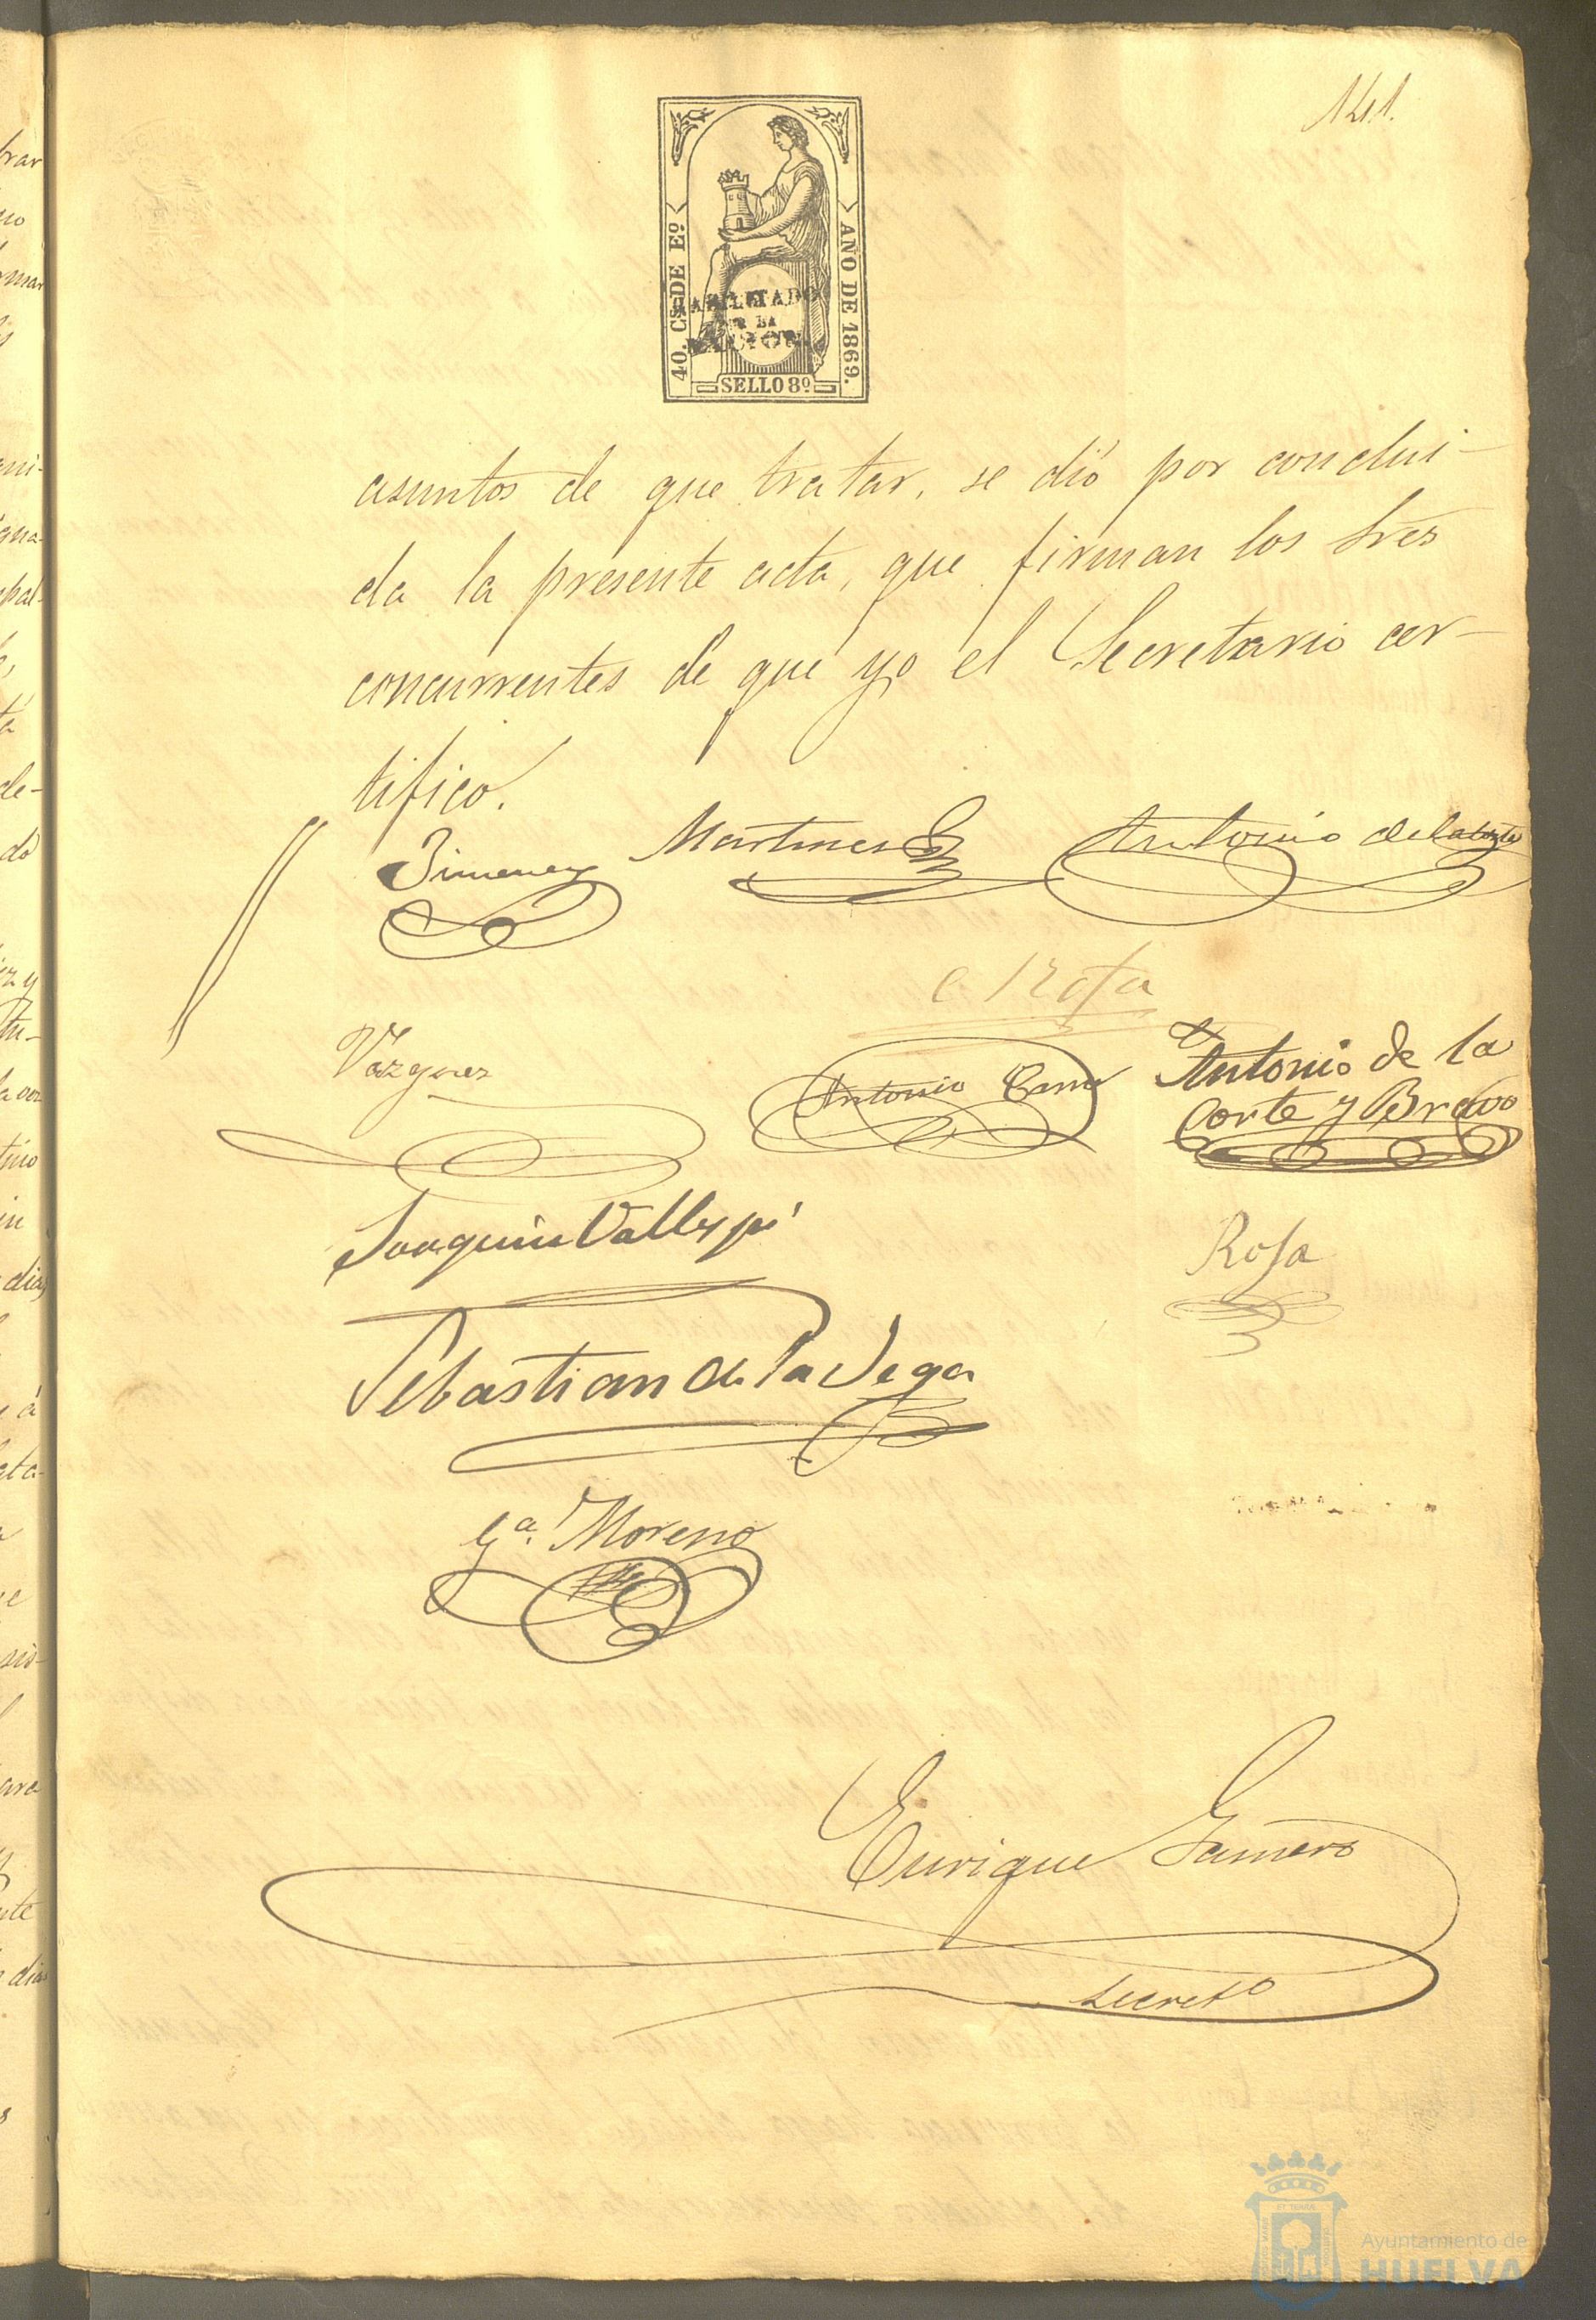 141.
40. Cs. DE Eº
AÑO DE 1869.
HABILITADO
POR LA
NACION.
SELLO 8º
asuntos de que tratar, se dió por conclui-
da la presente acta, que firman los Sres
concurrentes de que yo el Secretario cer-
tifico.
Jimenez Martinez Antonio de la Corte
Rosa
Vazquez Antonio Antonio de la
Corte y Bravo
Joaquin Vallespi
Rosa
Sebastian de la Vega
Gª. Moreno
Enrique Gamero
Secretº
Ayuntamiento de
HUELVA